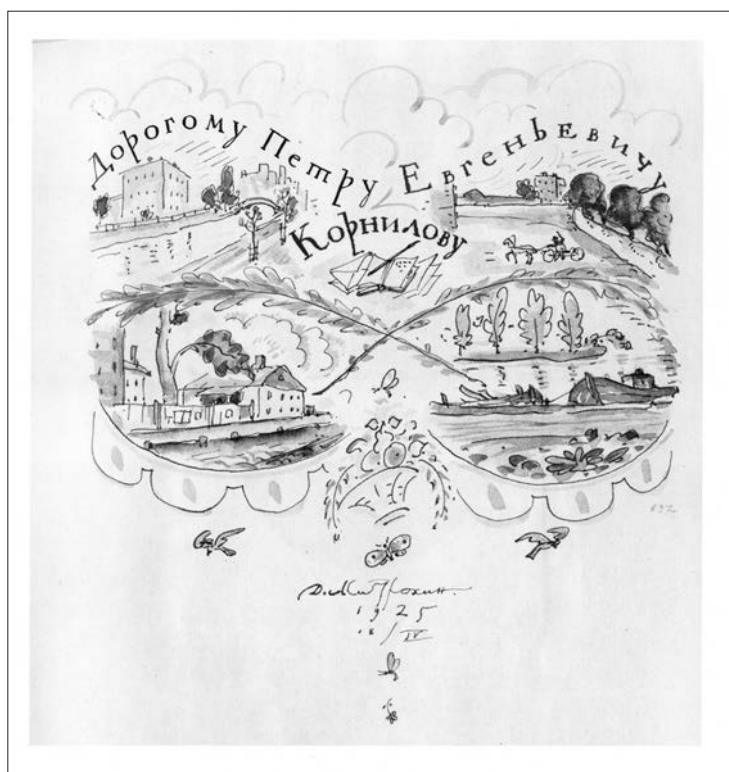 Дорогому Петру Евгеньевичу
Корнилову
632
Д. Митрохин.
1925
18/IV